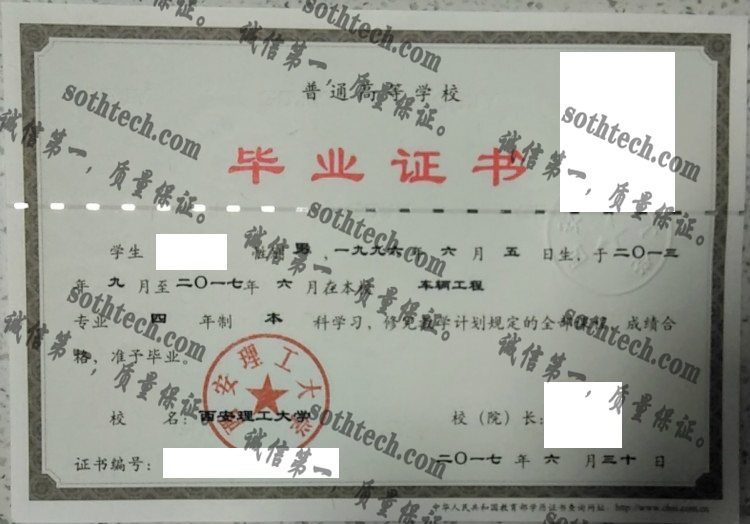 普通高等学校
毕业证书
学生 性别 男 ，一九九六年 六 月 五 日生，于二〇一三
年 九 月至二〇一七年 六 月在本校 车辆工程
专业 四 年制 本 科学习，修完教学计划规定的全部课程，成绩合
格，准予毕业。
西安理工大学
校 名：西安理工大学 校（院）长：
证书编号： 二〇一七 年 六 月 三十 日
中华人民共和国教育部学历证书查询网址：http://www.chsi.com.cn
sothtech.com
诚信第一，质量保证。
sothtech.com
诚信第一，质量保证。
sothtech.com
诚信第一，质量保证。
sothtech.com
诚信第一，质量保证。
sothtech.com
诚信第一，质量保证。
sothtech.com
诚信第一，质量保证。
sothtech.com
诚信第一，质量保证。